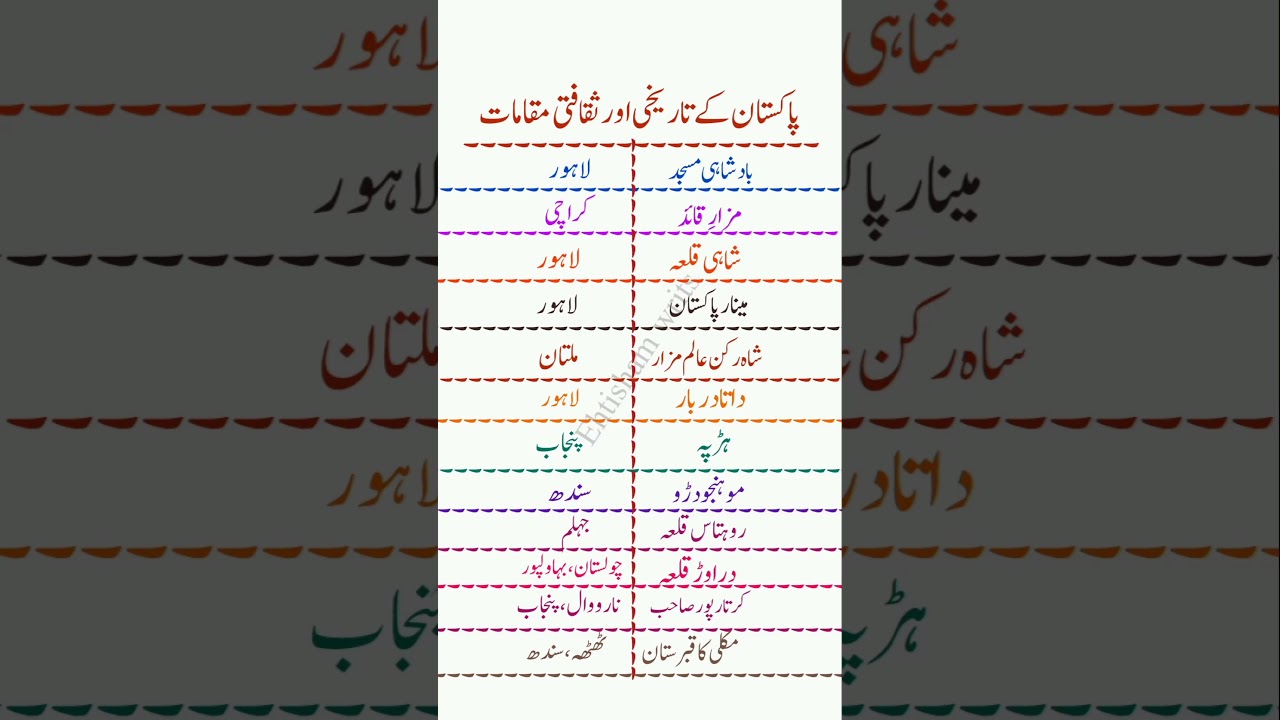 پاکستان کے تاریخی اور ثقافتی مقامات
بادشاہی مسجد لاہور
مزارِ قائد کراچی
شاہی قلعہ لاہور
مینار پاکستان لاہور
شاہ رکن عالم مزار ملتان
داتا دربار لاہور
ہڑپہ پنجاب
موہنجودڑو سندھ
روہتاس قلعہ جہلم
دراوڑ قلعہ چولستان، بہاولپور
کرتارپور صاحب نارووال، پنجاب
مکلی کا قبرستان ٹھٹھہ، سندھ
Ehtisham writs